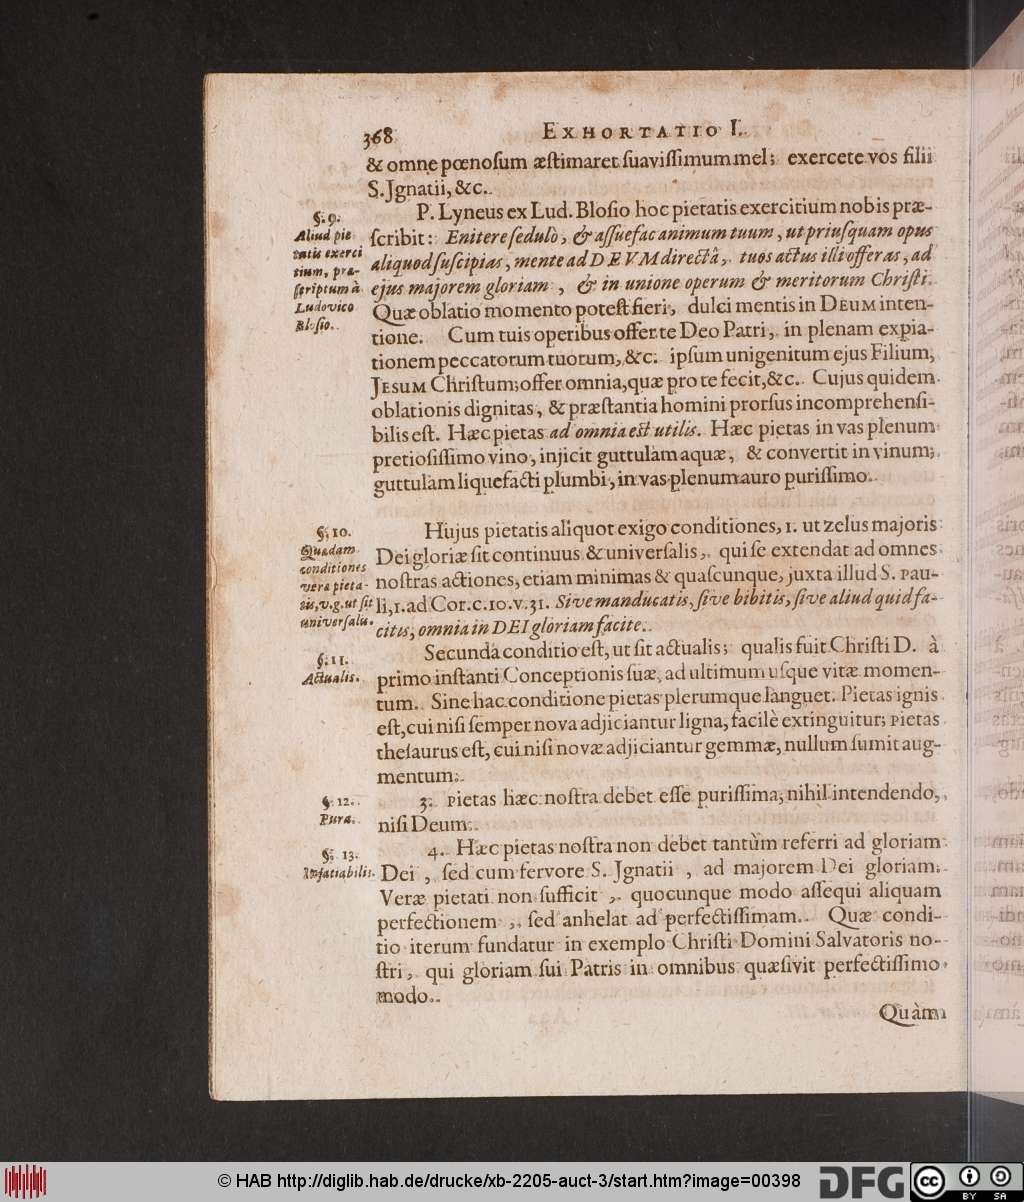 368
EXHORTATIO I.
& omne pœnosum æstimaret suavissimum mel; exercete vos filii
S. Jgnatii, &c.
§. 9.
Aliud pie
tatis exerci
tium, præ-
scriptum à
Ludovico
Blosio.
P. Lyneus ex Lud. Blosio hoc pietatis exercitium nobis præ-
scribit: Enitere sedulò, & assuefac animum tuum, ut priusquam opus
aliquod suscipias, mente ad DEVM directâ, tuos actus illi offeras, ad
ejus majorem gloriam, & in unione operum & meritorum Christi.
Quæ oblatio momento potest fieri, dulci mentis in DEUM inten-
tione. Cum tuis operibus offer te Deo Patri, in plenam expia-
tionem peccatorum tuorum, &c. ipsum unigenitum ejus Filium,
JESUM Christum; offer omnia, quæ pro te fecit, &c. Cujus quidem
oblationis dignitas, & præstantia homini prorsus incomprehensi-
bilis est. Hæc pietas ad omnia est utilis. Hæc pietas in vas plenum
pretiosissimo vino, injicit guttulam aquæ, & convertit in vinum;
guttulam liquefacti plumbi, in vas plenum auro purissimo.
§. 10.
Quædam
conditiones
veræ pieta-
tis, v.g. ut sit
universalis.
Hujus pietatis aliquot exigo conditiones, 1. ut zelus majoris
Dei gloriæ sit continuus & universalis, qui se extendat ad omnes
nostras actiones, etiam minimas & quascunque, juxta illud S. Pau-
li, 1. ad Cor. c. 10. v. 31. Sive manducatis, sive bibitis, sive aliud quid fa-
citis, omnia in DEI gloriam facite.
§. 11.
Actualis.
Secunda conditio est, ut sit actualis; qualis fuit Christi D. à
primo instanti Conceptionis suæ, ad ultimum usque vitæ momen-
tum. Sine hac conditione pietas plerumque languet. Pietas ignis
est, cui nisi semper nova adjiciantur ligna, facilè extinguitur; Pietas
thesaurus est, cui nisi novæ adjiciantur gemmæ, nullum sumit aug-
mentum.
§. 12.
Pura.
3. Pietas hæc nostra debet esse purissima, nihil intendendo,
nisi Deum.
§. 13.
Insatiabilis.
4. Hæc pietas nostra non debet tantùm referri ad gloriam
Dei, sed cum fervore S. Jgnatii, ad majorem Dei gloriam.
Veræ pietati non sufficit, quocunque modo assequi aliquam
perfectionem, sed anhelat ad perfectissimam. Quæ condi-
tio iterum fundatur in exemplo Christi Domini Salvatoris no-
stri, qui gloriam sui Patris in omnibus quæsivit perfectissimo
modo.
Quàm
© HAB http://diglib.hab.de/drucke/xb-2205-auct-3/start.htm?image=00398
DFG
cc
BY SA